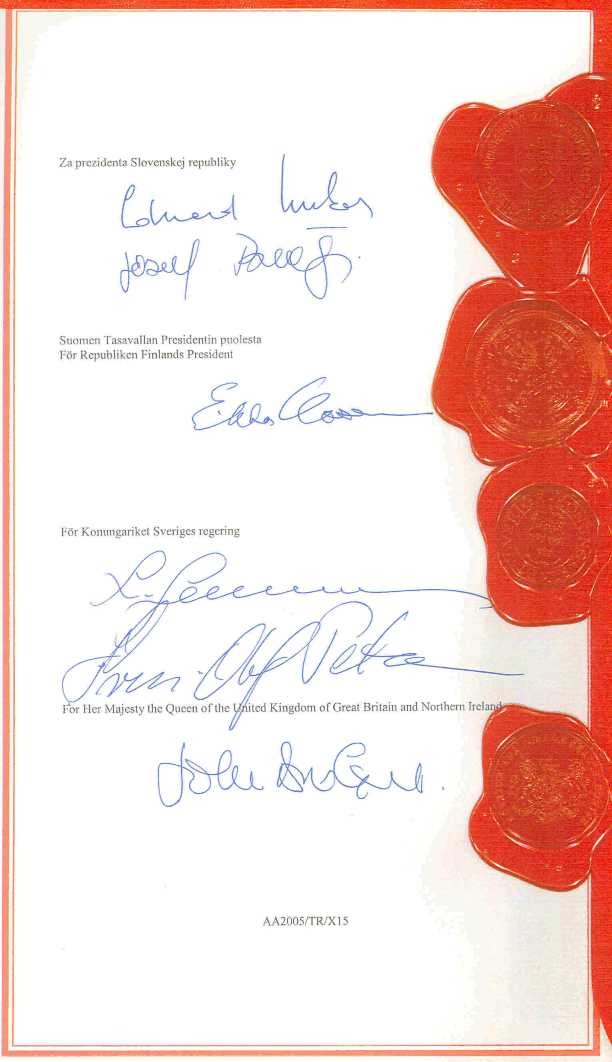 Za prezidenta Slovenskej republiky
Eduard Kukan
József
Suomen Tasavallan Presidentin puolesta
För Republiken Finlands President
För Konungariket Sveriges regering
Sven-Olof Petersson
For Her Majesty the Queen of the United Kingdom of Great Britain and Northern Ireland
John
AA2005/TR/X15